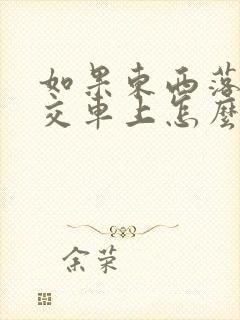 如果東西落
交車上怎麼
余荣